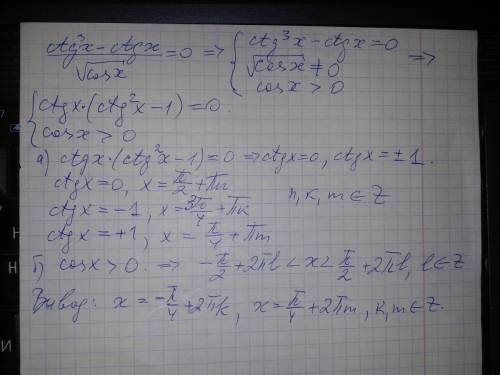 (ctg³x - ctgx)/√cosx = 0 => { ctg³x - ctgx = 0; √cosx ≠ 0; cosx > 0 =>
{ ctgx·(ctg²x - 1) = 0. cosx > 0
а) ctgx·(ctg²x - 1) = 0 => ctgx = 0, ctgx = ±1.
ctgx = 0, x = π/2 + πn
ctgx = -1, x = 3π/4 + πk n, k, m ∈ Z
ctgx = +1, x = π/4 + πm
б) cosx > 0. => -π/2 + 2πl < x < π/2 + 2πl, l ∈ Z
Вывод: x = -π/4 + 2πk, x = π/4 + 2πm, k, m ∈ Z.
Н
И